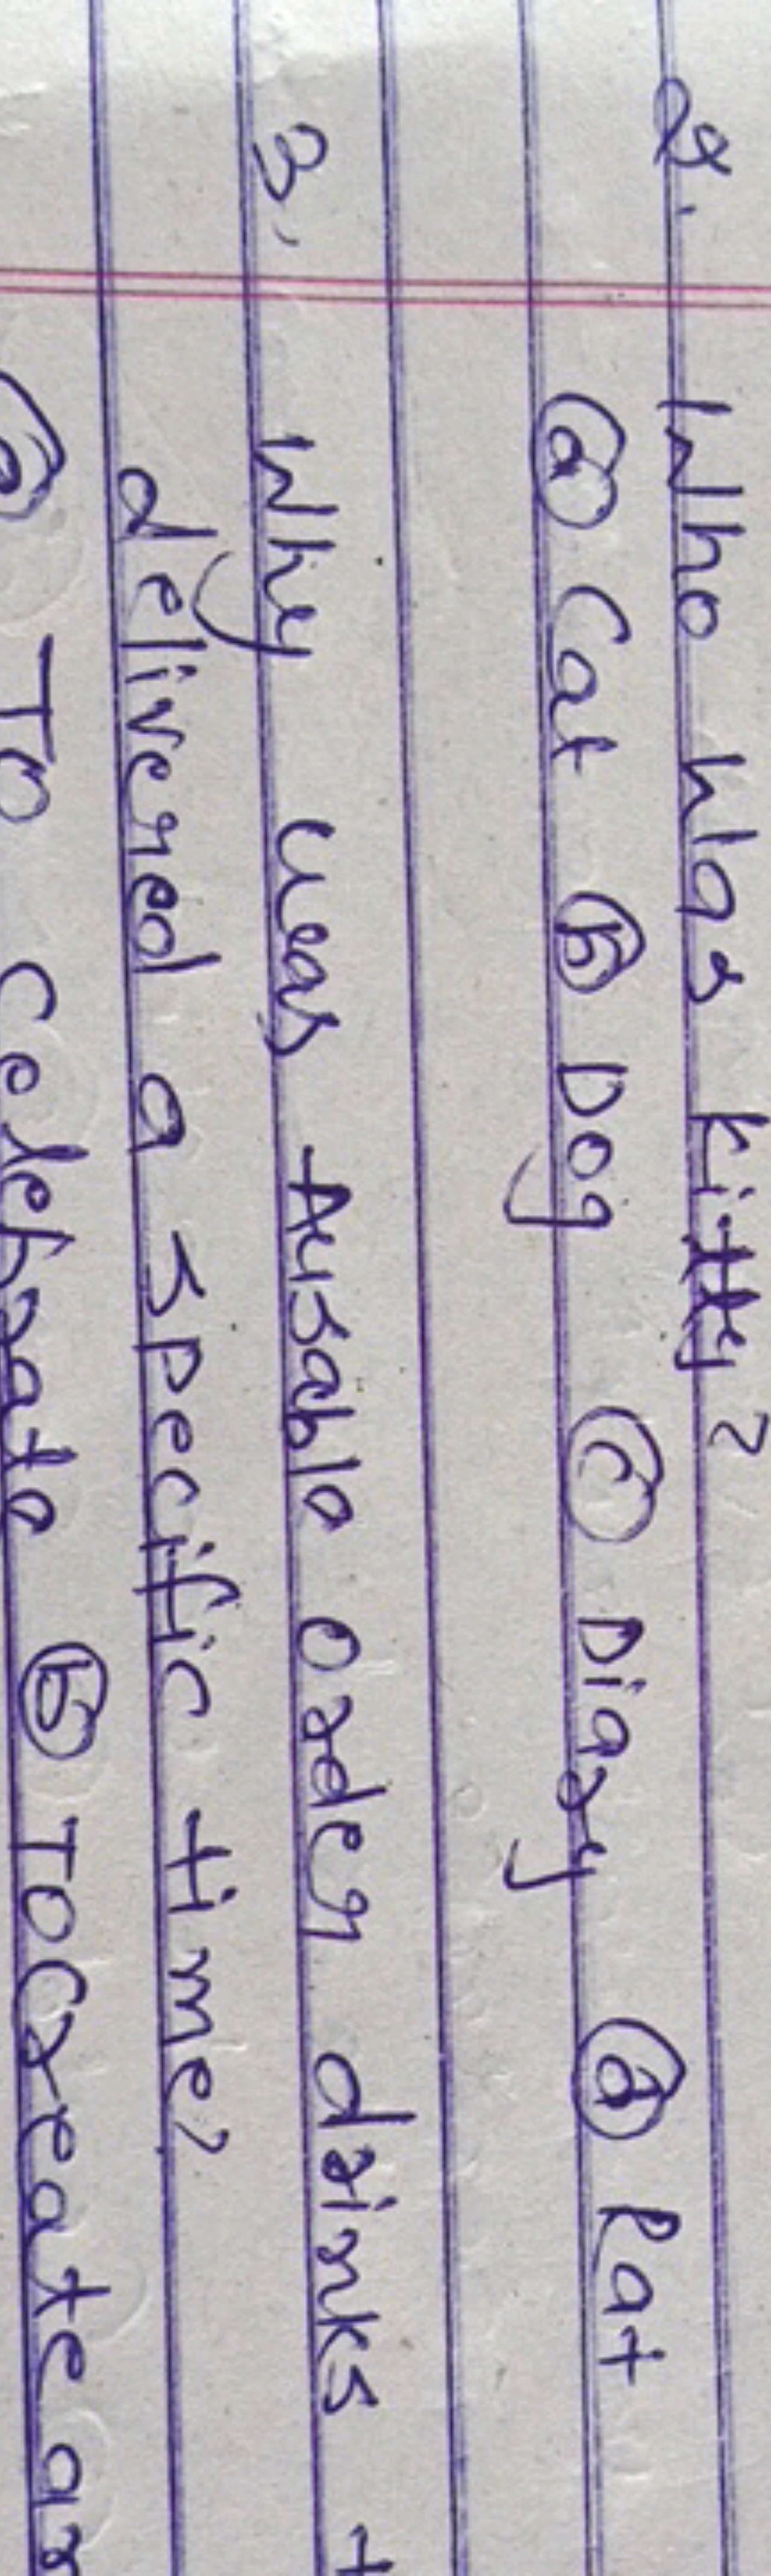 2. Who was kitty?
(a) Cat (b) Dog (c) Diary (d) Rat
3. Why was Ausable order drinks t
delivered a specific time?
(a) To Celebrate (b) To Create an